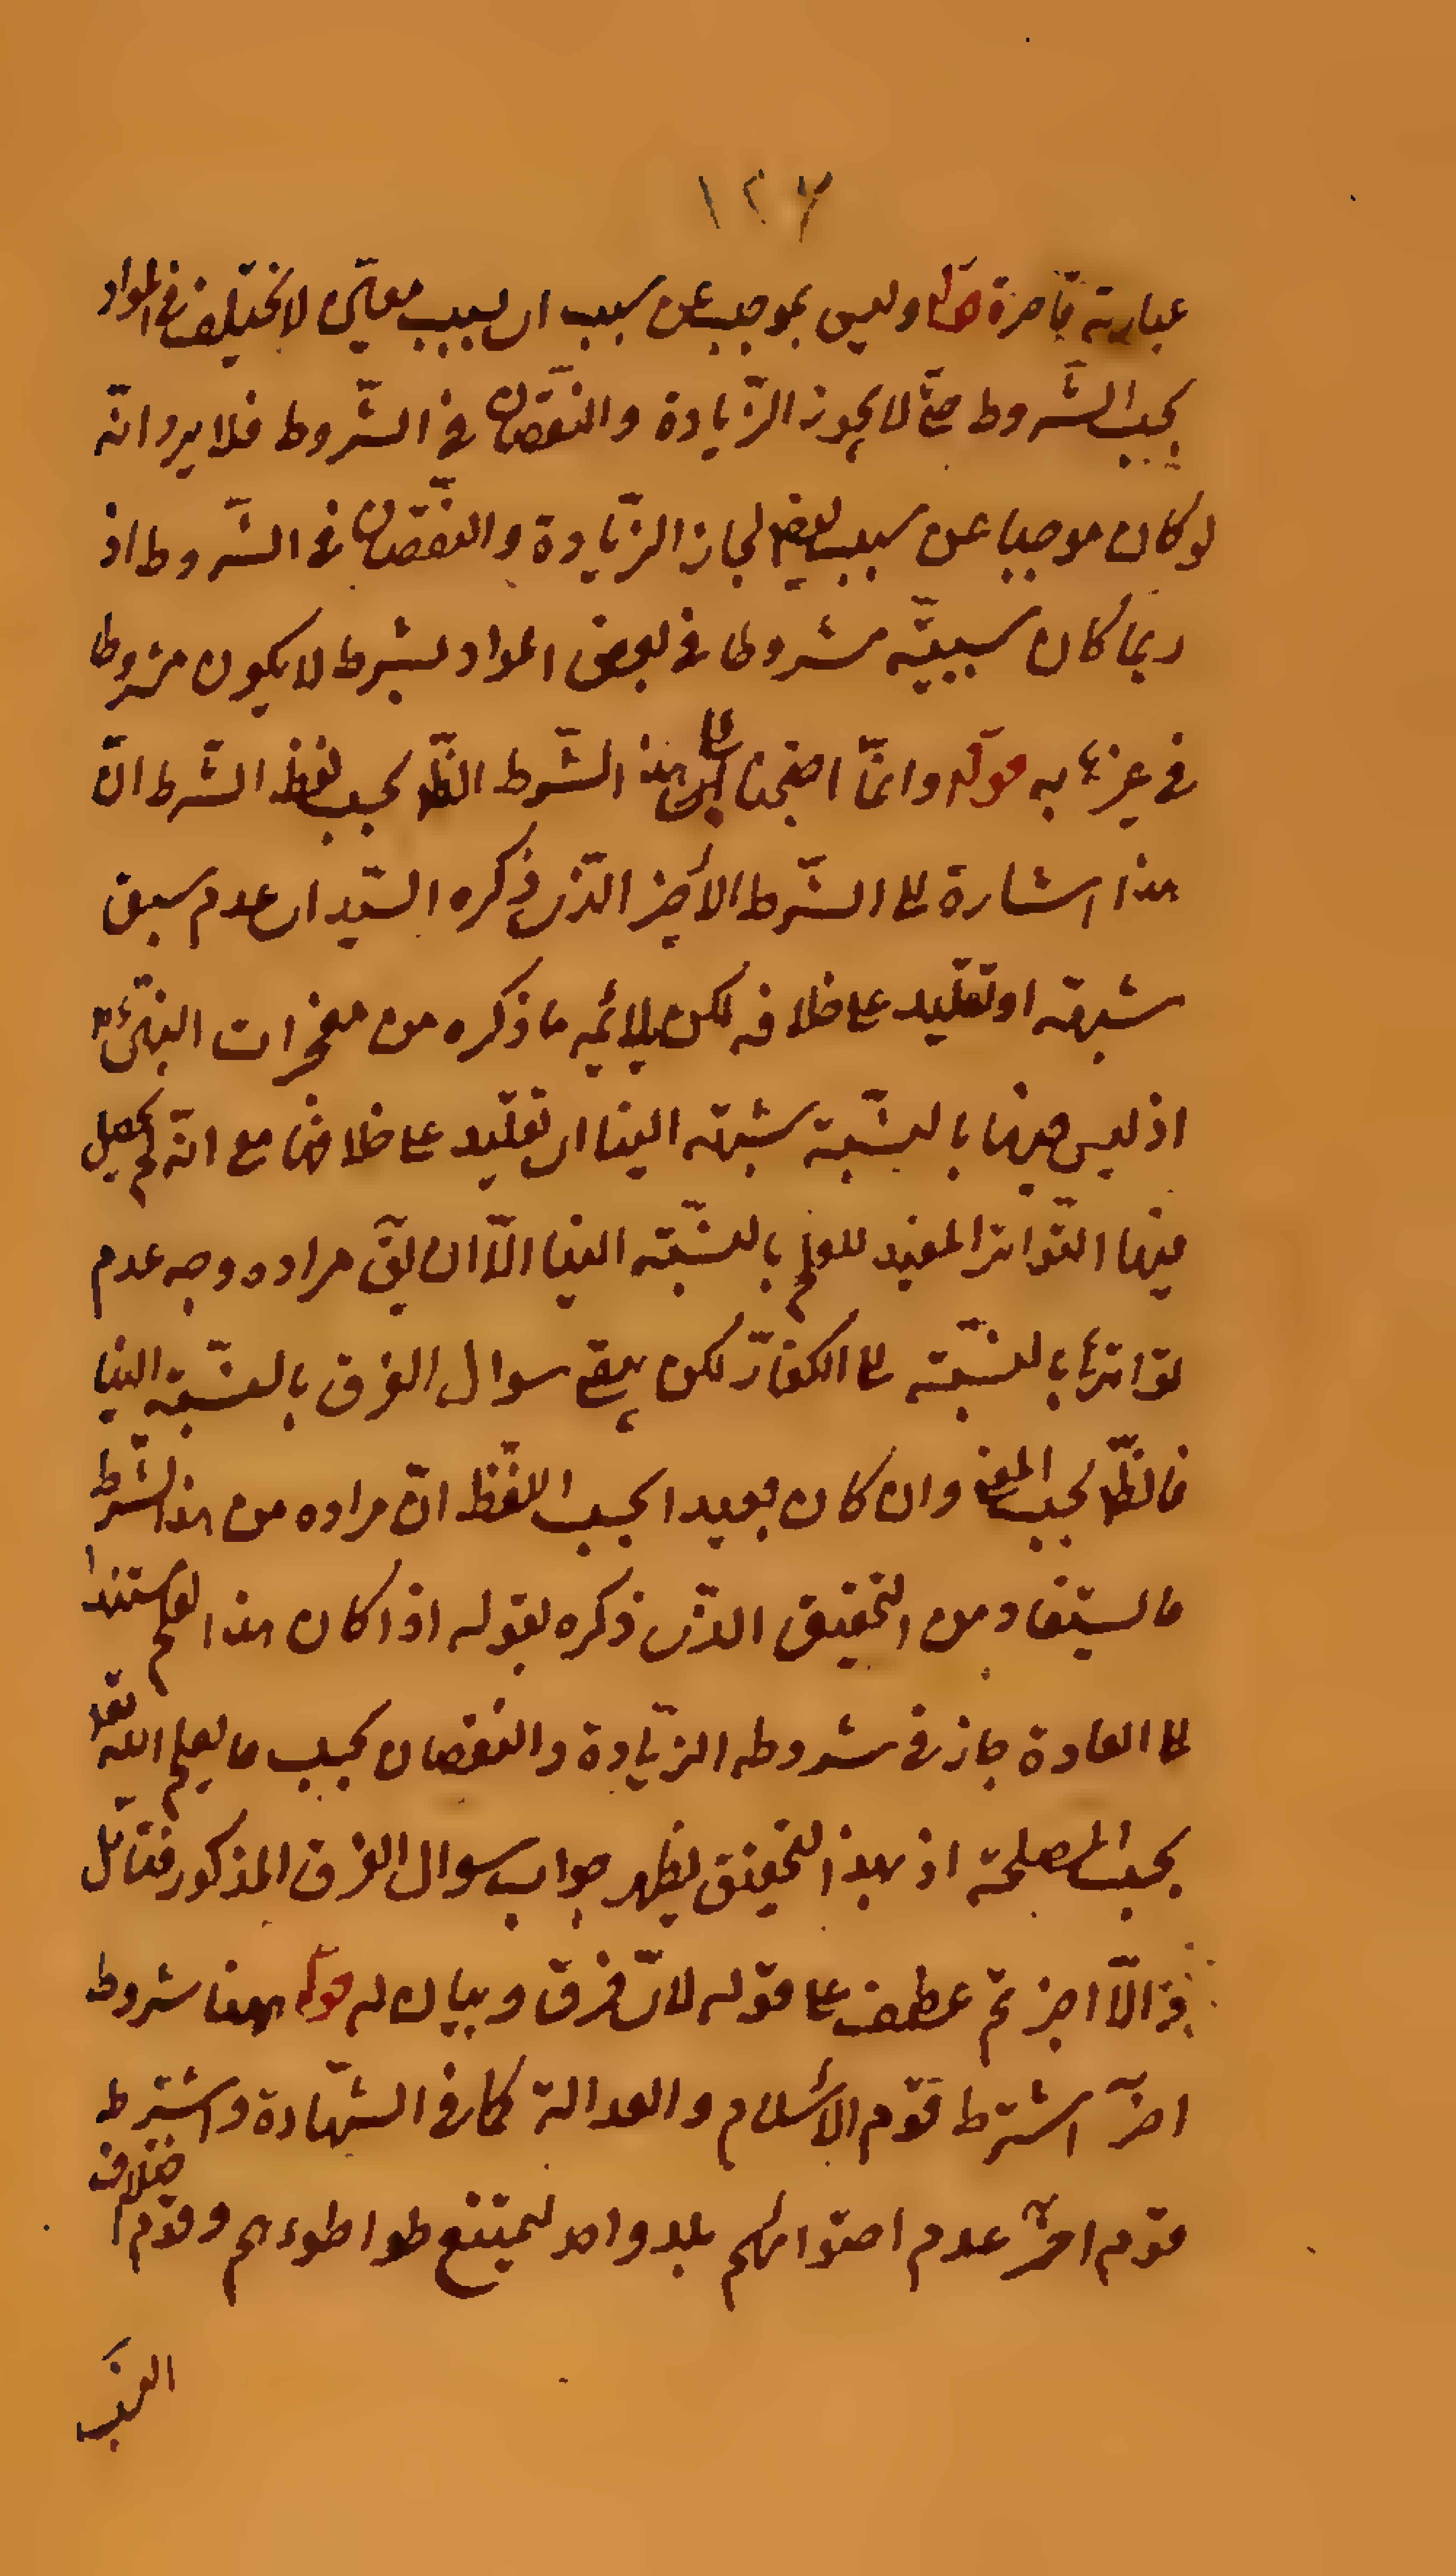 ١٢٧
عبارته قاصرة قوله وليس بموجب عن سبب اى بسبب معيّن لا يختلف فى المواد
بحسب الشّروط حتّى لا يجوز الزّيادة والنّقصان فى الشّروط فلا يرد انّه
لو كان موجبا عن سبب لجاز الزّيادة والنّقصان فى الشّروط اذ
ربما كان سببيّته مشروطا فى بعض المواد بشرط لا يكون مشروطا
فى غيرها به قوله وانّما احتجنا الى هذا الشّرط الظّ بحسب لفظ الشّرط انّ
هذا اشارة الى الشّرط الأخير الّذى ذكره السّيد اى عدم سبق
شبهة او تقليد على خلافه لكن لا يلائمه ما ذكره من معجزات النبىّ
اذ ليس فيها بالنّسبة شبهة الينا او تقليد على خلافها مع انّه لم يحصل
فيها التّواتر المفيد للعلم بالنّسبة الينا الّا ان يقّ مراده وجه عدم
تواترها بالنّسبة الى الكفّار لكن يبقى سؤال الفرق بالنّسبة الينا
فالظّ بحسب المعنى وان كان بعيدا بحسب اللّفظ انّ مراده من هذا الشّرط
ما يستفاد من التّحقيق الّذى ذكره بقوله اذا كان هذا العلم مستندا
الى العادة جاز فى شروطه الزّيادة والنقصان بحسب ما يعلم اللّه تعه
بحسب المصلحة اذ بهذا التّحقيق يظهر جواب سؤال الفرق المذكور فتأمّل
قوله والّا اجزتم عطف على قوله لأىّ فرق وبيان له قوله ههنا شروط
اخر اشترط قوم الأسلام والعدالة كما فى الشّهادة واشترط
قوم اخر عدم احتوائهم بلد واحد ليمتنع تواطؤهم وقوم اختلاف
النسب